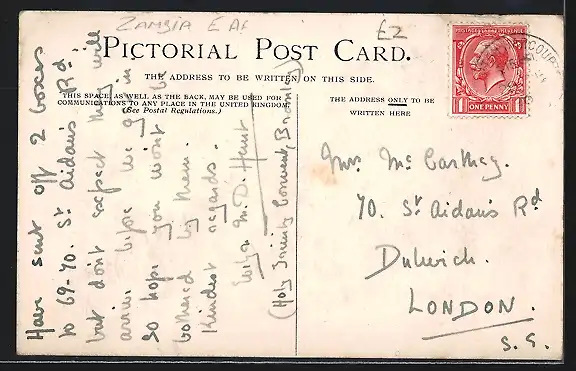 ZAMBIA E Af
£2
PICTORIAL POST CARD.
THE ADDRESS TO BE WRITTEN ON THIS SIDE.
THIS SPACE, AS WELL AS THE BACK, MAY BE USED FOR
COMMUNICATIONS TO ANY PLACE IN THE UNITED KINGDOM.
(See Postal Regulations.)
THE ADDRESS ONLY TO BE
WRITTEN HERE
POSTAGE REVENUE
ONE PENNY
Have sent off 2 boxes
to 69-70. St Aidan's Rd.
but don't expect they will
arrive before we get in
so hope you won't be
bothered by them.
Kindest regards.
M. D. Hunt
(Holy Trinity Convent, Bromley)
Mrs McCarthey.
70. St Aidan's Rd
Dulwich.
LONDON.
S. E.